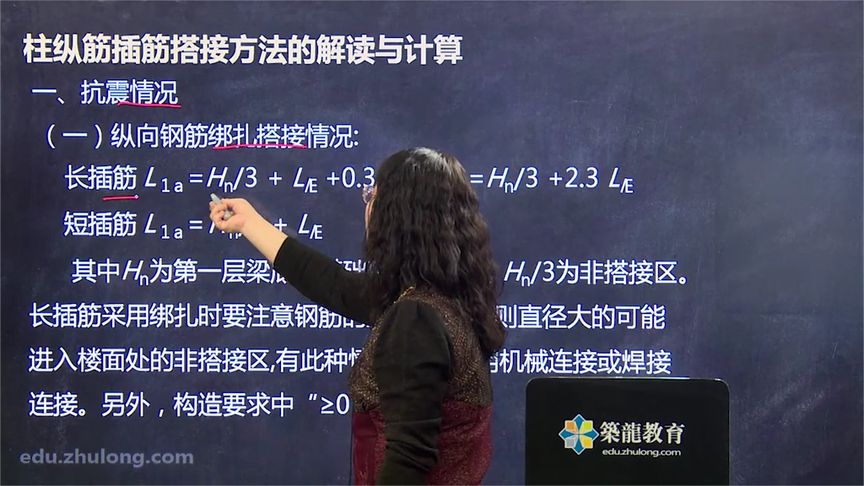 柱纵筋插筋搭接方法的解读与计算
一、抗震情况
（一）纵向钢筋绑扎搭接情况:
长插筋 L1a =Hn/3 + LlE +0.3 =Hn/3 +2.3 LlE
短插筋 L1a = + LlE
其中Hn为第一层梁底 Hn/3为非搭接区。
长插筋采用绑扎时要注意钢筋的 则直径大的可能
进入楼面处的非搭接区,有此种 机械连接或焊接
连接。另外，构造要求中“≥0
築龍教育
edu.zhulong.com
edu.zhulong.com